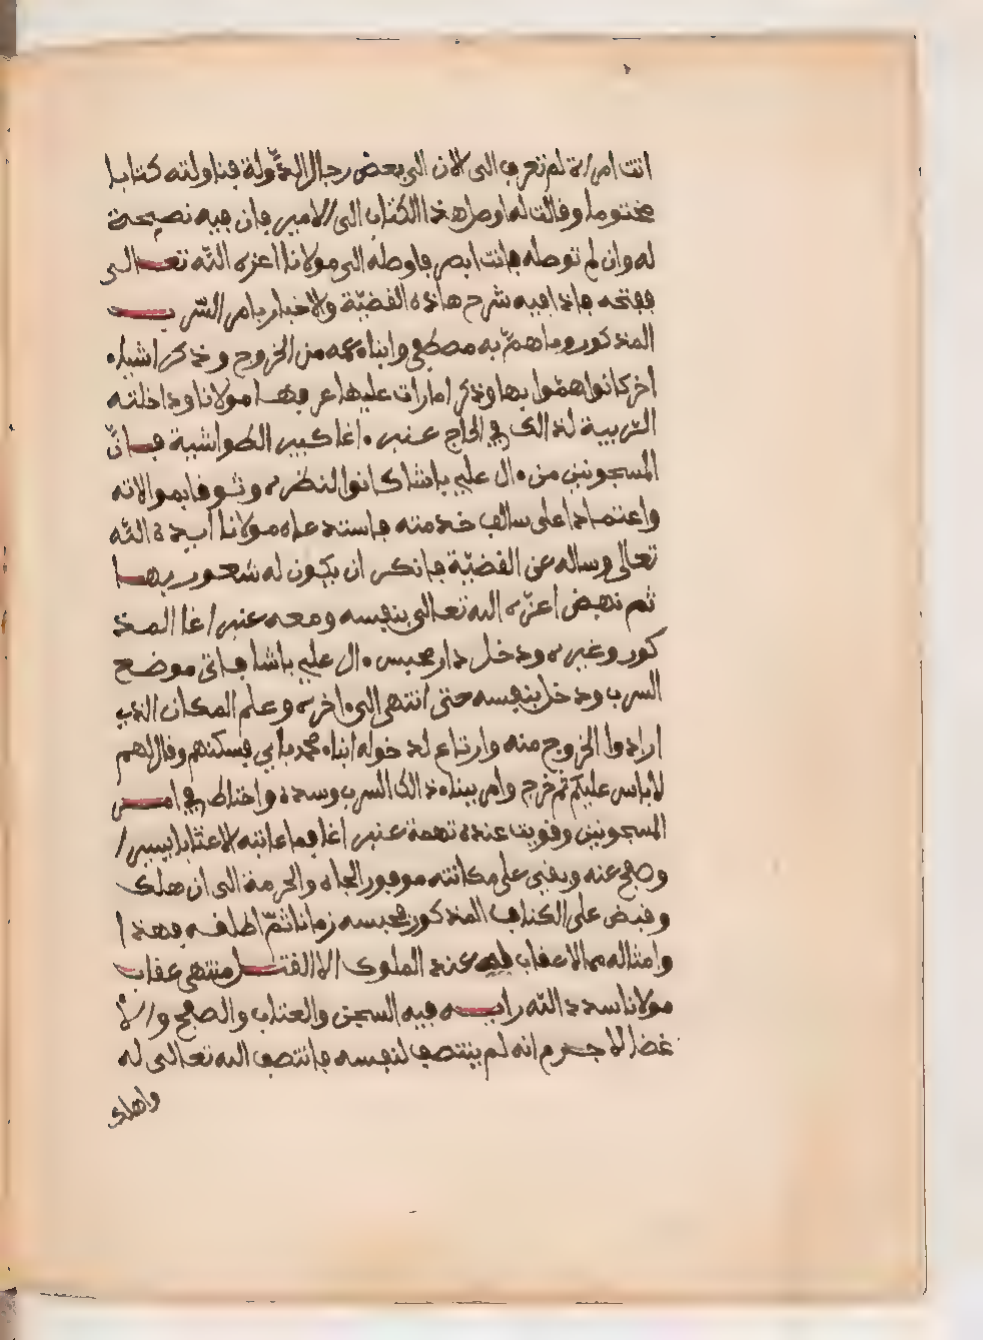 اتت امراة لم تعرف الى الان الى بعض رجال الدّولة فناولته كتابا
مختوما وقالت له اوصل هذا الكتاب الى الامير فان فيه نصيحة
له وان لم توصله فانت ابصر فاوصله الى مولانا اعزه الله تعالى
ففتحه فاذا فيه شرح هاذه القضيّة والاخبار بامر السّرب
المذكور وما همّ به مصطفى وابناء عمه من الخروج وذكر اشياء
اخر كانوا همّوا بها وذكر امارات عليها عرفها مولانا وداخلته
الرّيبة لذالك في الحاج عنبر اغا كبير الطواشية فانّ
المسجونين من ءال علي باشا كانوا لنظره وثوقا بموالاته
واعتمادا على سالف خدمته فاستدعاه مولانا ايده الله
تعالى وساله عن القضيّة فانكر ان يكون له شعور بها
ثم نهض اعزّه الله تعالى بنفسه ومعه عنبر اغا المذ
كور وغيره ودخل دار محبس ءال علي باشا فاتى موضع
السرب ودخل بنفسه حتى انتهى الى ءاخره وعلم المكان الذي
ارادوا الخروج منه وارتاع لدخوله ابناء محمد باي فسكنهم وقال لهم
لا باس عليكم ثم خرج وامر ببناء ذالك السرب وسده واحتاط في امر
المسجونين وقويت عنده تهمة عنبر اغا فما عاتبه الا عتابا يسيرا
وصفح عنه وبقي على مكانته موفور الجاه والحرمة الى ان هلك
وقبض على الكتاب المذكور فحبسه زمانا ثمّ اطلقه فهذا
وامثاله مما لا عقاب فيه عند الملوك الا القتل منتهى عقاب
مولانا سدد الله رايه فيه السجن والعتاب والصفح والا
غضا لا جرم انه لم ينتصف لنفسه فانتصف الله تعالى له
واهلك